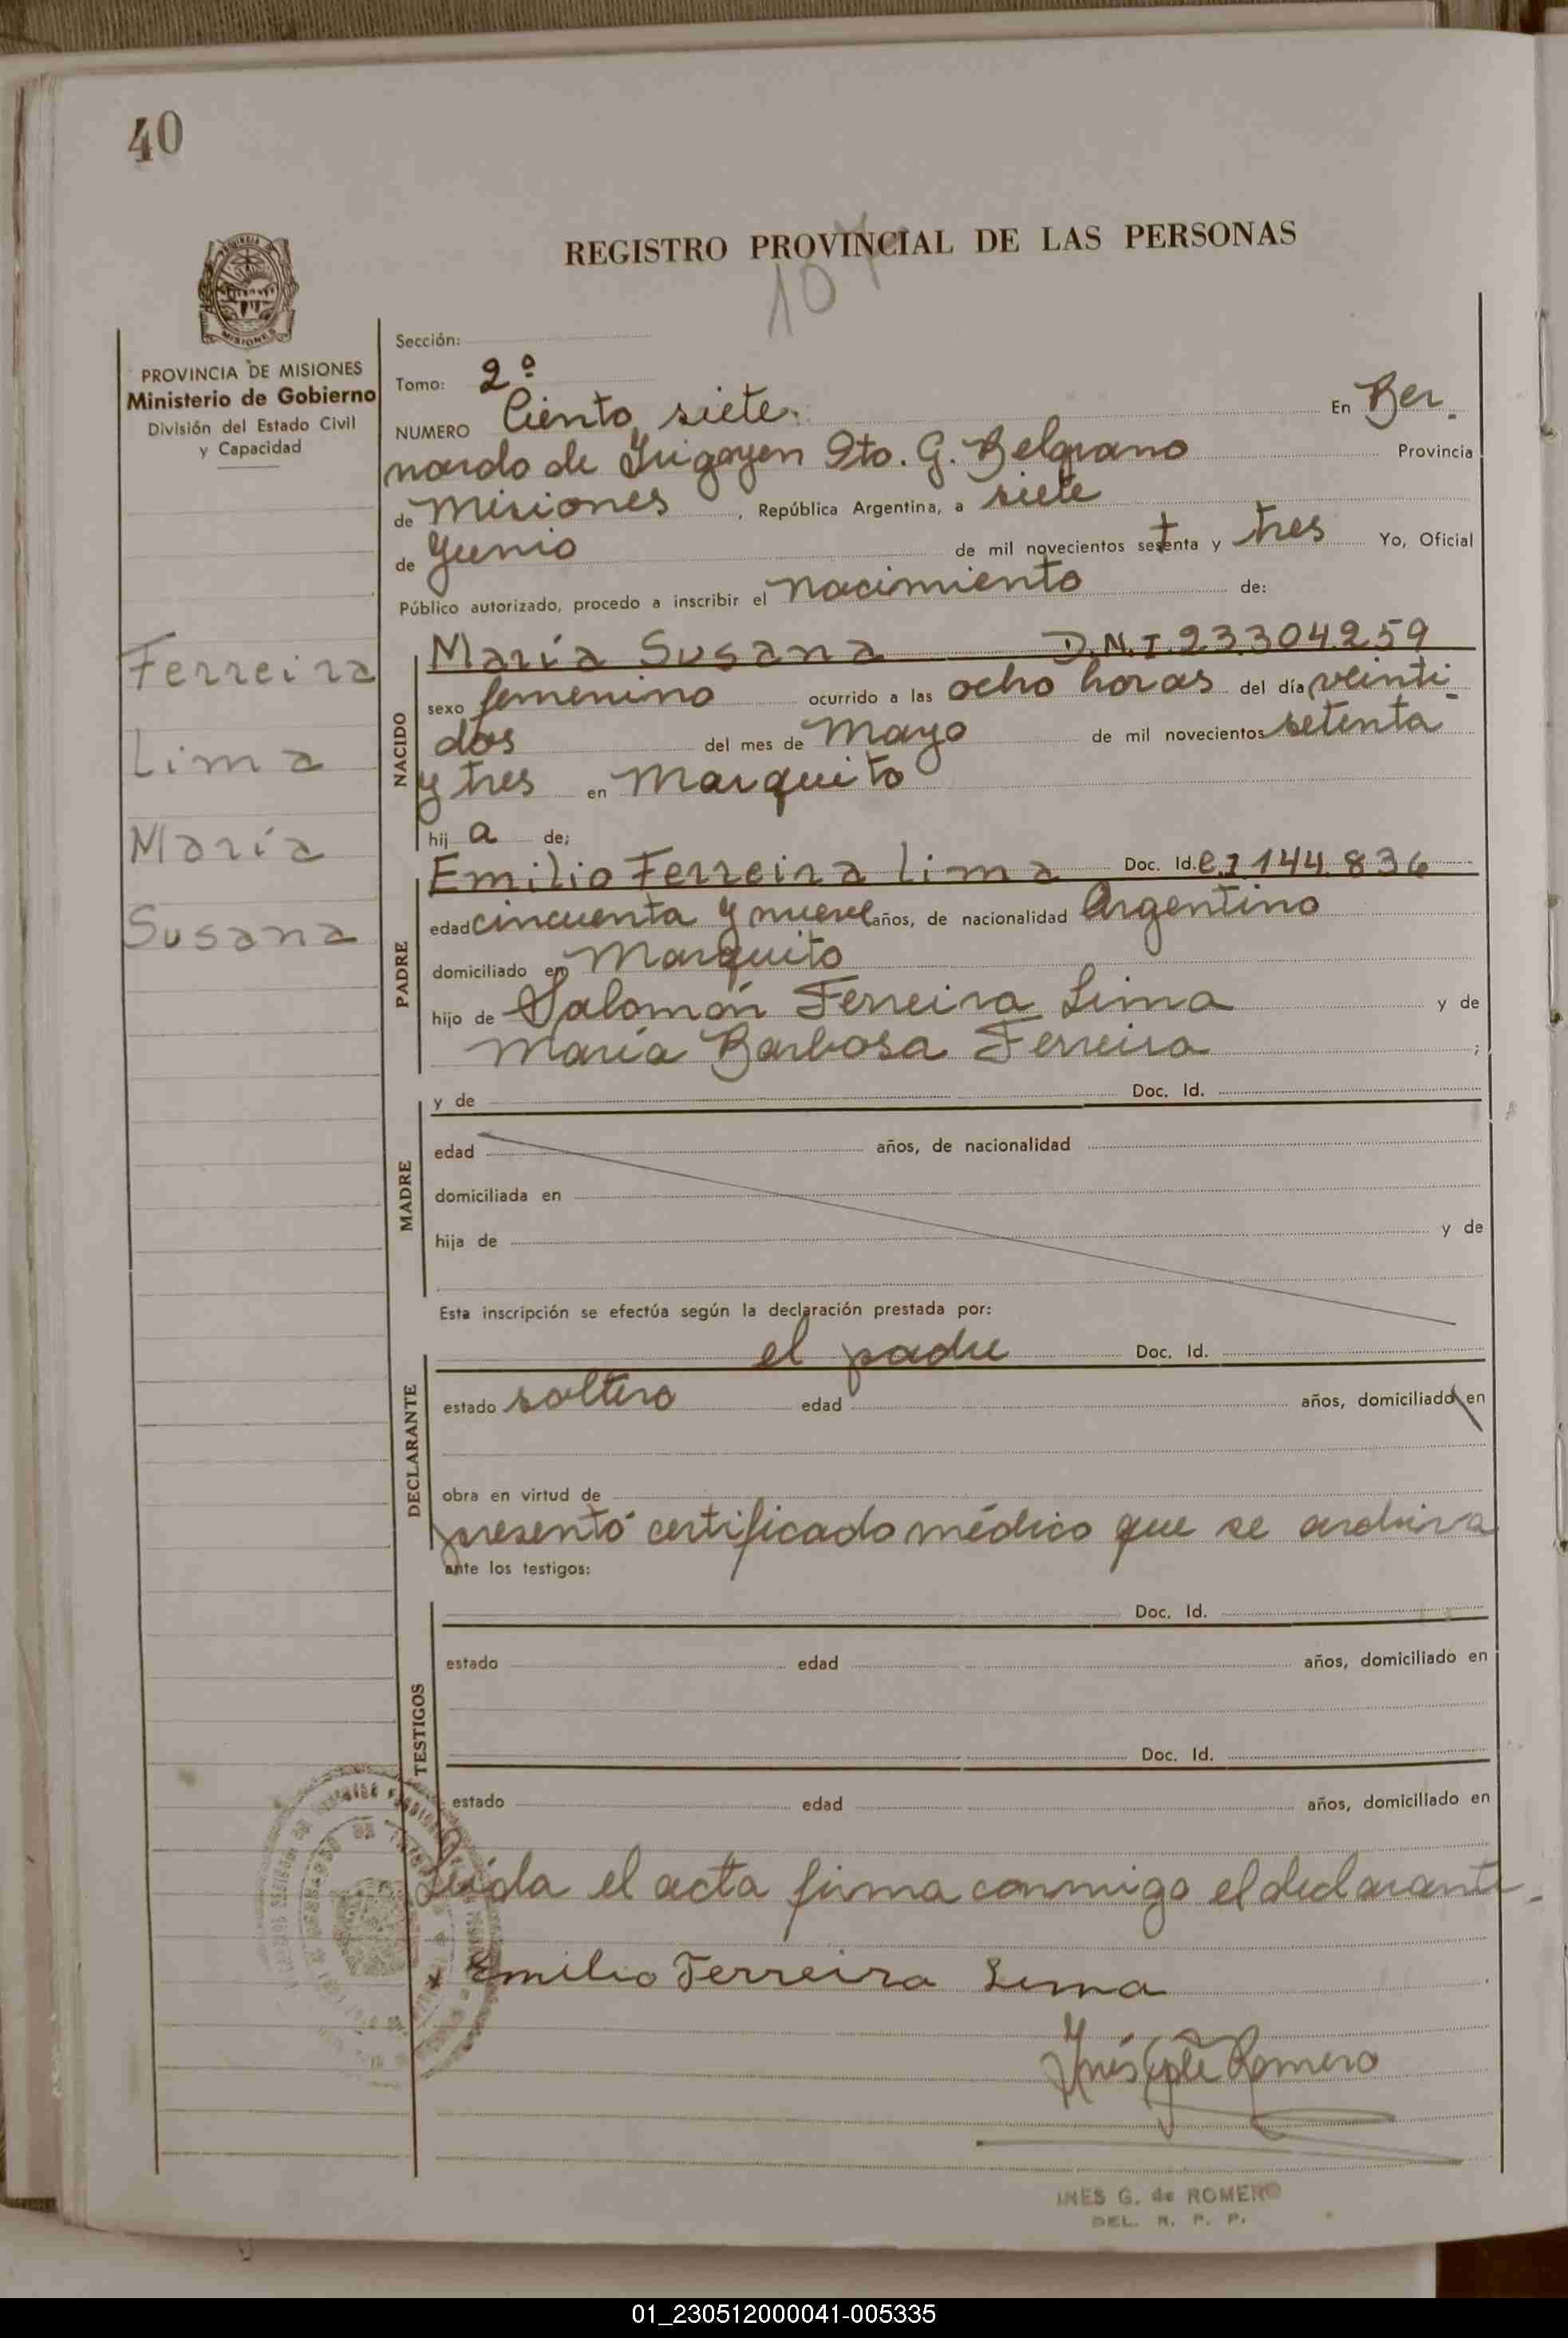 40
REGISTRO PROVINCIAL DE LAS PERSONAS
107
MISIONES
PROVINCIA DE MISIONES
Ministerio de Gobierno
División del Estado Civil
y Capacidad
Ferreira
Lima
María
Susana
Sección:
Tomo: 2º
NUMERO Ciento siete. En Ber.
nardo de Irigoyen Dto. G. Belgrano Provincia
de Misiones , República Argentina, a siete
de Junio de mil novecientos setenta y tres Yo, Oficial
Público autorizado, procedo a inscribir el nacimiento de:
NACIDO
María Susana D.N.I. 23.304.259
sexo femenino ocurrido a las ocho horas del día veinti-
dos del mes de Mayo de mil novecientos setenta
y tres en Marquito
hij a de;
PADRE
Emilio Ferreira Lima Doc. Id. 144.836
edad cincuenta y nueve años, de nacionalidad Argentino
domiciliado en Marquito
hijo de Salomón Ferreira Lima y de
María Barbosa Ferreira ;
MADRE
y de Doc. Id.
edad años, de nacionalidad
domiciliada en
hija de y de
Esta inscripción se efectúa según la declaración prestada por:
DECLARANTE
el padre Doc. Id.
estado soltero edad años, domiciliado en
obra en virtud de
presentó certificado médico que se archiva
ante los testigos:
TESTIGOS
Doc. Id.
estado edad años, domiciliado en
Doc. Id.
estado edad años, domiciliado en
Leída el acta firma conmigo el declarante.
Emilio Ferreira Lima
Inés de Romero
INES G. de ROMERO
DEL. R. P. P.
01_230512000041-005335